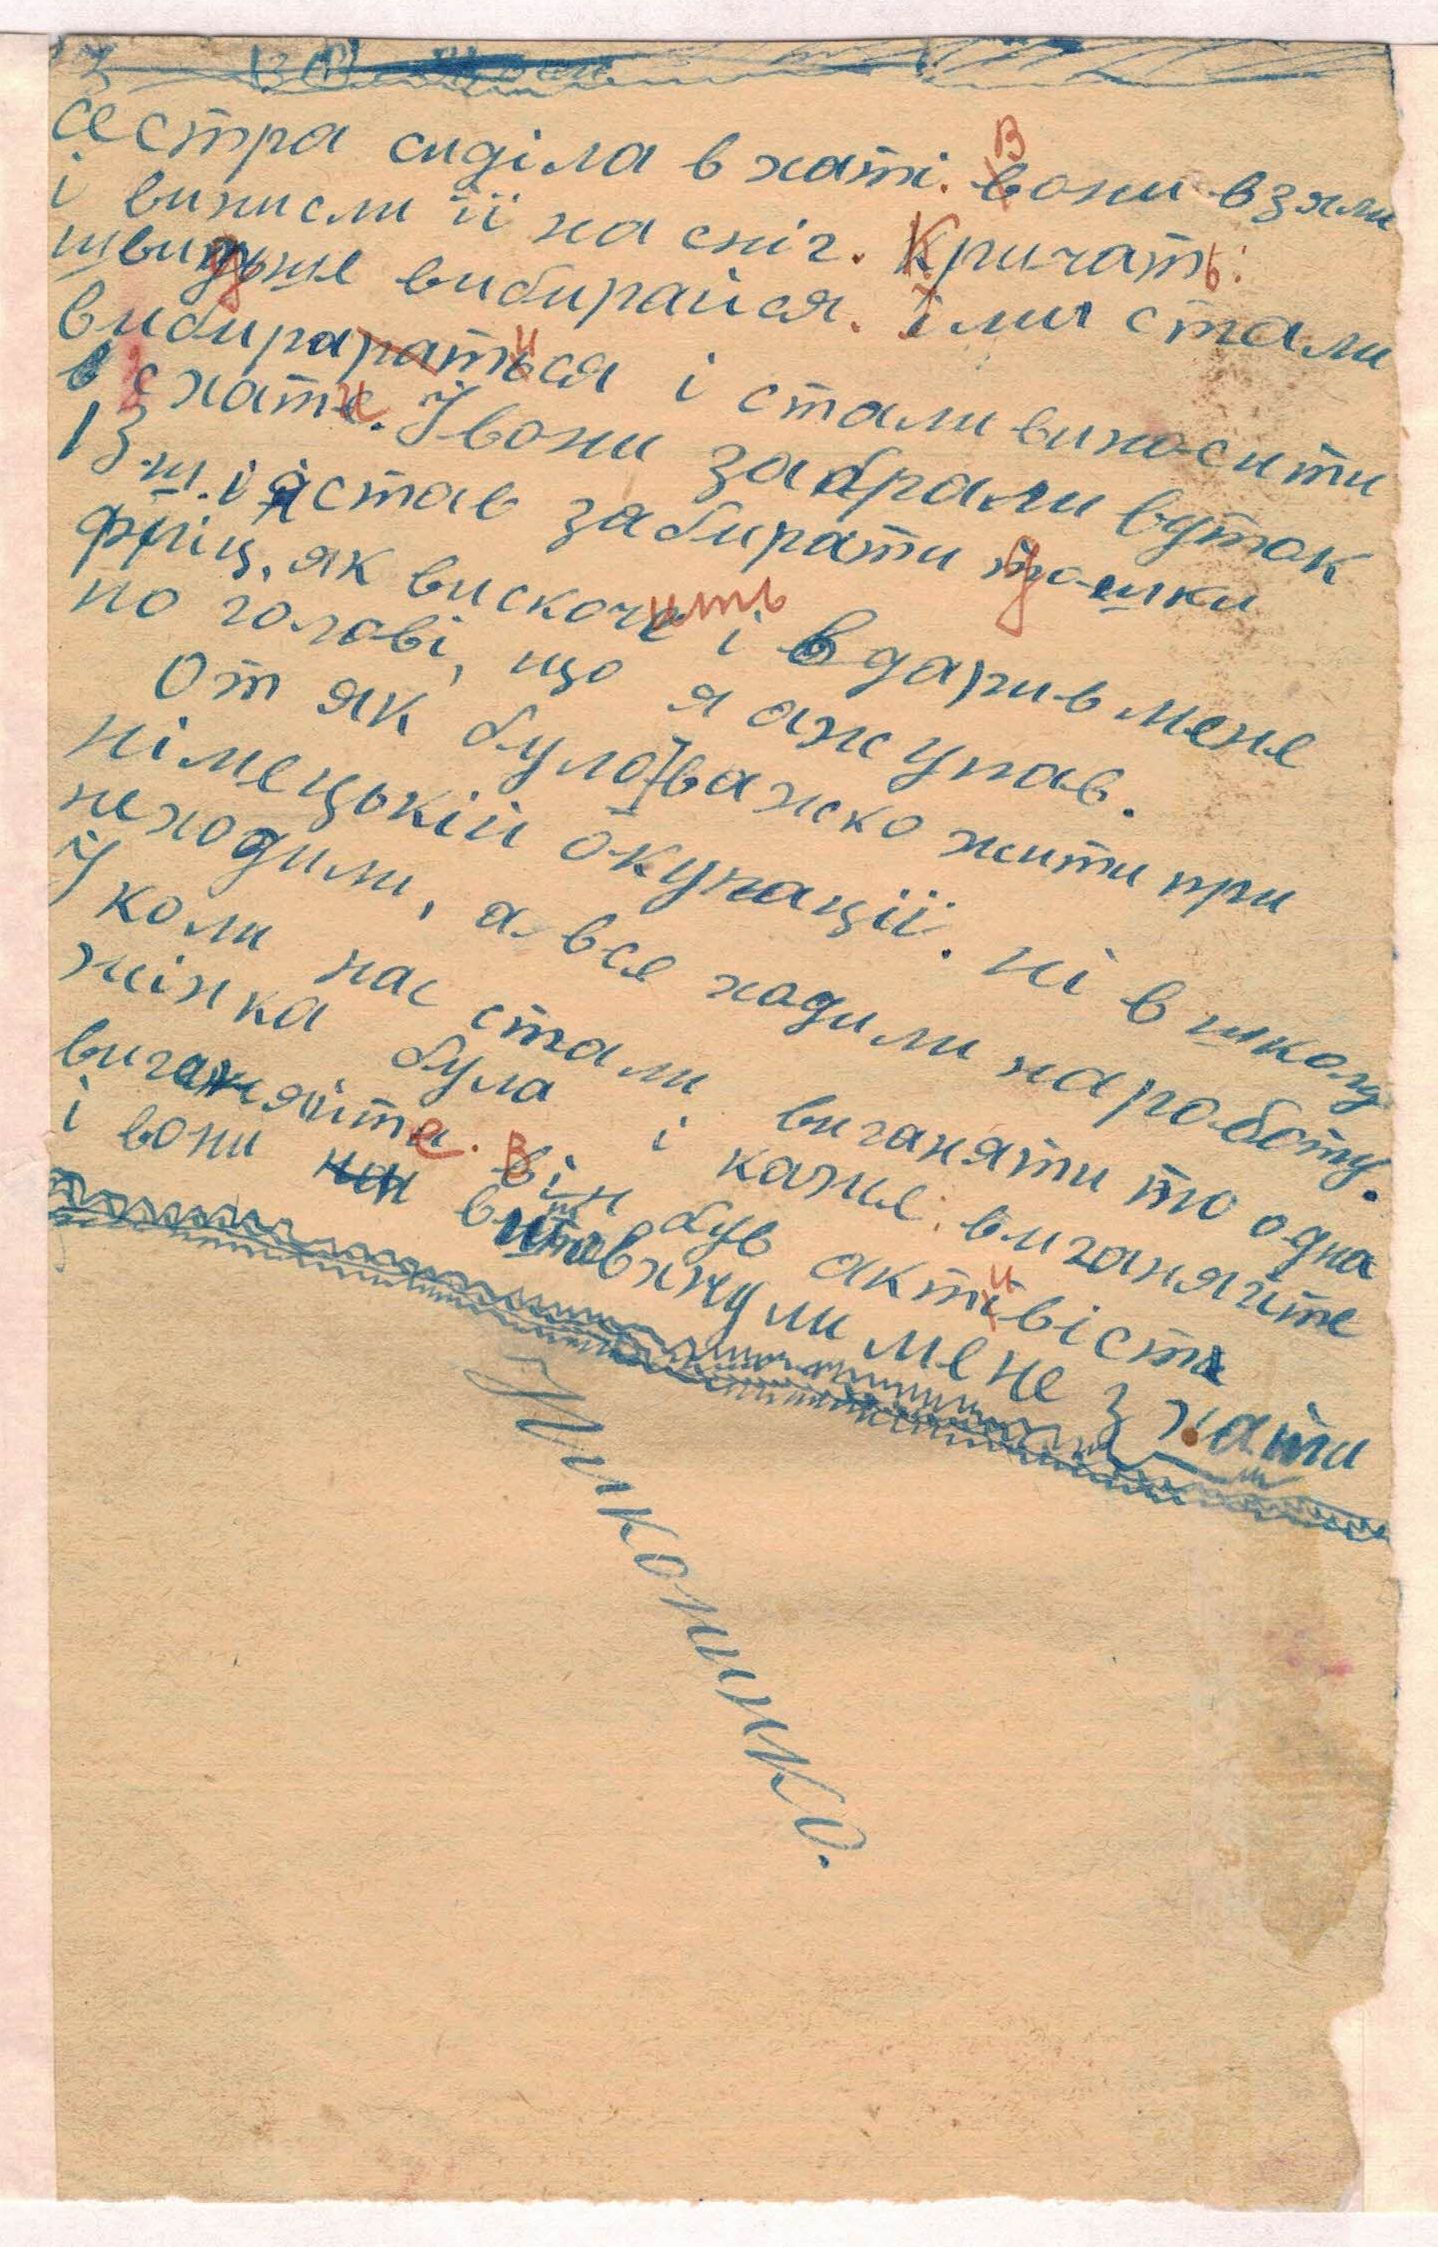 сестра сиділа в хаті. Вони взяли
і винисли її на сніг. Кричать:
швидше вибирайся. і ми стали
вибиратися і стали виносити
з хати. І вони забрали вуток
13 ш. і я став забирати дошки
фріц, як вискочить і вдарив мене
по голові, що я аж упав.
От як було важко жити при
німецькій окупації. ні в школу
неходили, а все ходили на роботу.
І коли нас стали виганяти то одна
жінка була і каже: виганяйте
виганяйте. Він був активіста
і вони виштовхнули мене з хати
Никоненко.